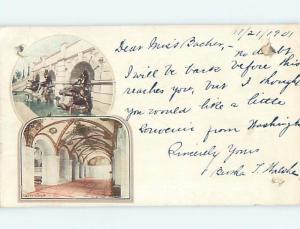 11/21/1901
Dear Miss Bacher, -
no doubt
I will be back before this
reaches you, but I thought
you would like a little
souvenir from Washington
Sincerely Yours